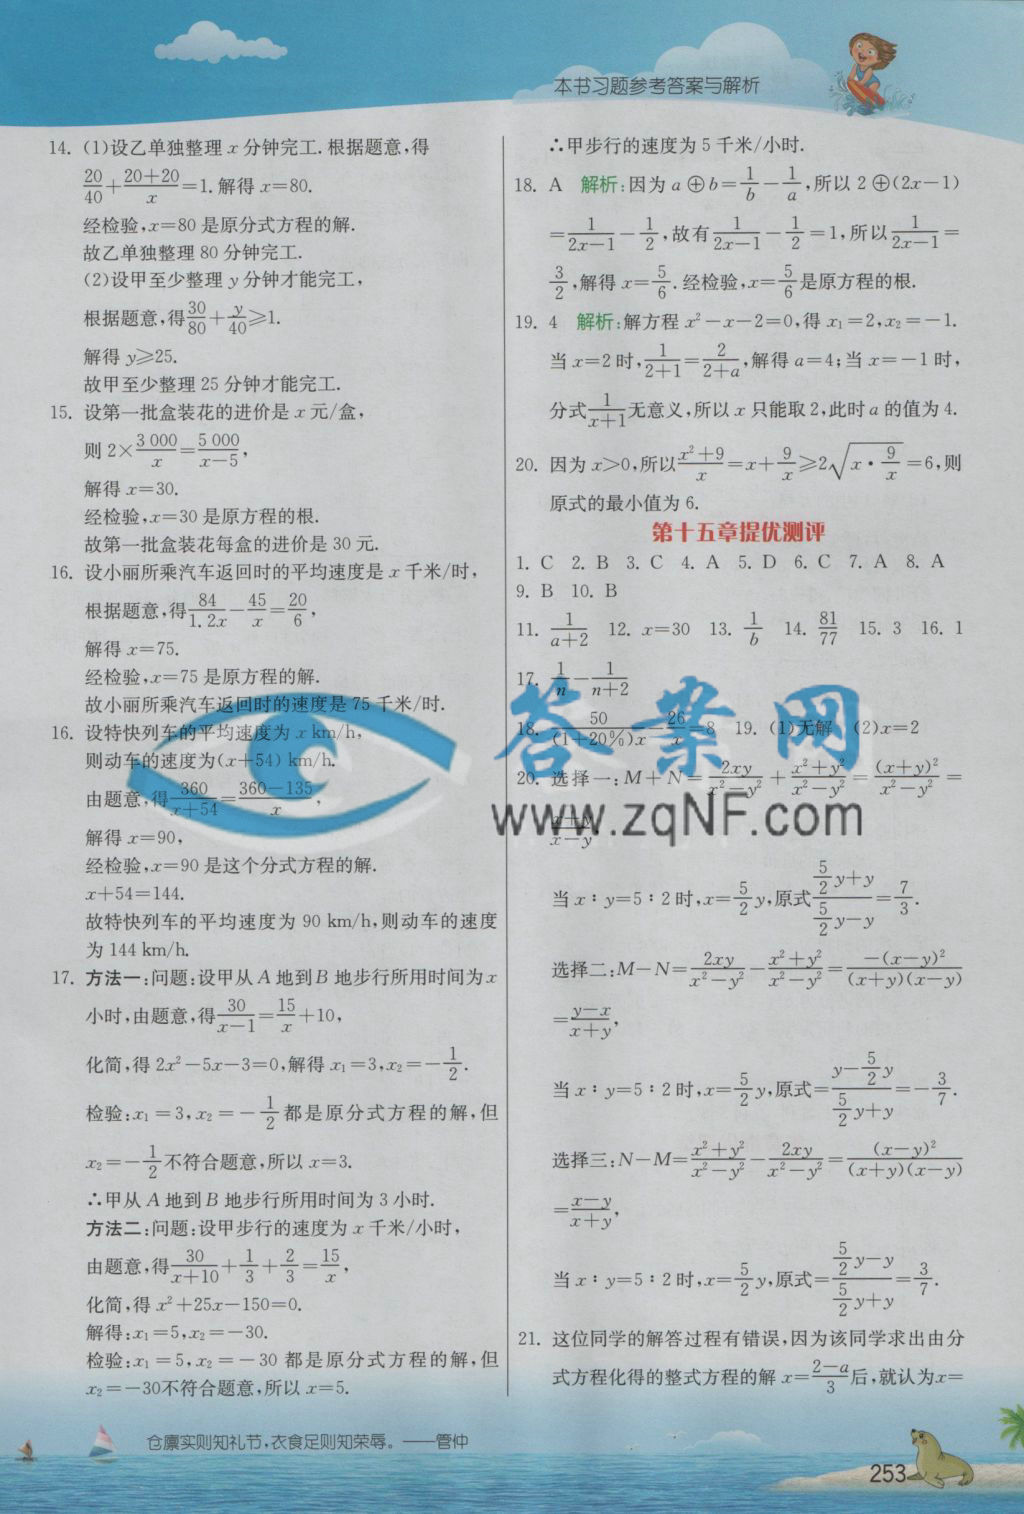 本书习题参考答案与解析
14. (1)设乙单独整理 x 分钟完工. 根据题意,得
20/40+(20+20)/x=1. 解得 x=80.
经检验,x=80 是原分式方程的解.
故乙单独整理 80 分钟完工.
(2)设甲至少整理 y 分钟才能完工,
根据题意,得30/80+y/40⩾1.
解得 y⩾25.
故甲至少整理 25 分钟才能完工.
15. 设第一批盒装花的进价是 x 元/盒,
则 2×3 000/x=5 000/(x-5),
解得 x=30.
经检验,x=30 是原方程的根.
故第一批盒装花每盒的进价是 30 元.
16. 设小丽所乘汽车返回时的平均速度是 x 千米/时,
根据题意,得84/1.2x-45/x=20/6,
解得 x=75.
经检验,x=75 是原方程的解.
故小丽所乘汽车返回时的速度是 75 千米/时.
16. 设特快列车的平均速度为 x km/h,
则动车的速度为(x+54) km/h.
由题意,得360/(x+54)=(360-135)/x,
解得 x=90,
经检验,x=90 是这个分式方程的解.
x+54=144.
故特快列车的平均速度为 90 km/h,则动车的速度
为 144 km/h.
17. 方法一:问题:设甲从 A 地到 B 地步行所用时间为 x
小时,由题意,得30/(x-1)=15/x+10,
化简,得 2x²-5x-3=0,解得 x₁=3,x₂=-1/2.
检验:x₁=3,x₂=-1/2都是原分式方程的解,但
x₂=-1/2不符合题意,所以 x=3.
∴甲从 A 地到 B 地步行所用时间为 3 小时.
方法二:问题:设甲步行的速度为 x 千米/小时,
由题意,得30/(x+10)+1/3+2/3=15/x,
化简,得 x²+25x-150=0.
解得:x₁=5,x₂=-30.
检验:x₁=5,x₂=-30 都是原分式方程的解,但
x₂=-30不符合题意,所以 x=5.
∴甲步行的速度为 5 千米/小时.
18. A 解析:因为 a⊕b=1/b-1/a,所以 2⊕(2x-1)
=1/(2x-1)-1/2,故有1/(2x-1)-1/2=1,所以1/(2x-1)=
3/2,解得 x=5/6. 经检验,x=5/6是原方程的根.
19. 4 解析:解方程 x²-x-2=0,得 x₁=2,x₂=-1.
当 x=2 时,1/(2+1)=2/(2+a),解得 a=4;当 x=-1 时,
分式1/(x+1)无意义,所以 x 只能取 2,此时 a 的值为 4.
20. 因为 x>0,所以(x²+9)/x=x+9/x⩾2√(x·9/x)=6,则
原式的最小值为 6.
第十五章提优测评
1. C 2. B 3. C 4. A 5. D 6. C 7. A 8. A
9. B 10. B
11. 1/(a+2) 12. x=30 13. 1/b 14. 81/77 15. 3 16. 1
17. 1/n-1/(n+2)
18. 50/(1+20%)x-26/x=8 19. (1)无解 (2)x=2
20. 选择一:M+N=2xy/(x²-y²)+(x²+y²)/(x²-y²)=(x+y)²/(x²-y²)=
(x+y)/(x-y)
当 x∶y=5∶2 时,x=5/2y,原式(5/2y+y)/(5/2y-y)=7/3.
选择二:M-N=2xy/(x²-y²)-(x²+y²)/(x²-y²)=-(x-y)²/(x+y)(x-y)
=(y-x)/(x+y),
当 x∶y=5∶2 时,x=5/2y,原式=(y-5/2y)/(5/2y+y)=-3/7.
选择三:N-M=(x²+y²)/(x²-y²)-2xy/(x²-y²)=(x-y)²/(x+y)(x-y)
=(x-y)/(x+y),
当 x∶y=5∶2 时,x=5/2y,原式=(5/2y-y)/(5/2y+y)=3/7.
21. 这位同学的解答过程有错误,因为该同学求出由分
式方程化得的整式方程的解 x=(2-a)/3后,就认为x=
答案网
www.zqNF.com
仓廪实则知礼节,衣食足则知荣辱。——管仲
253